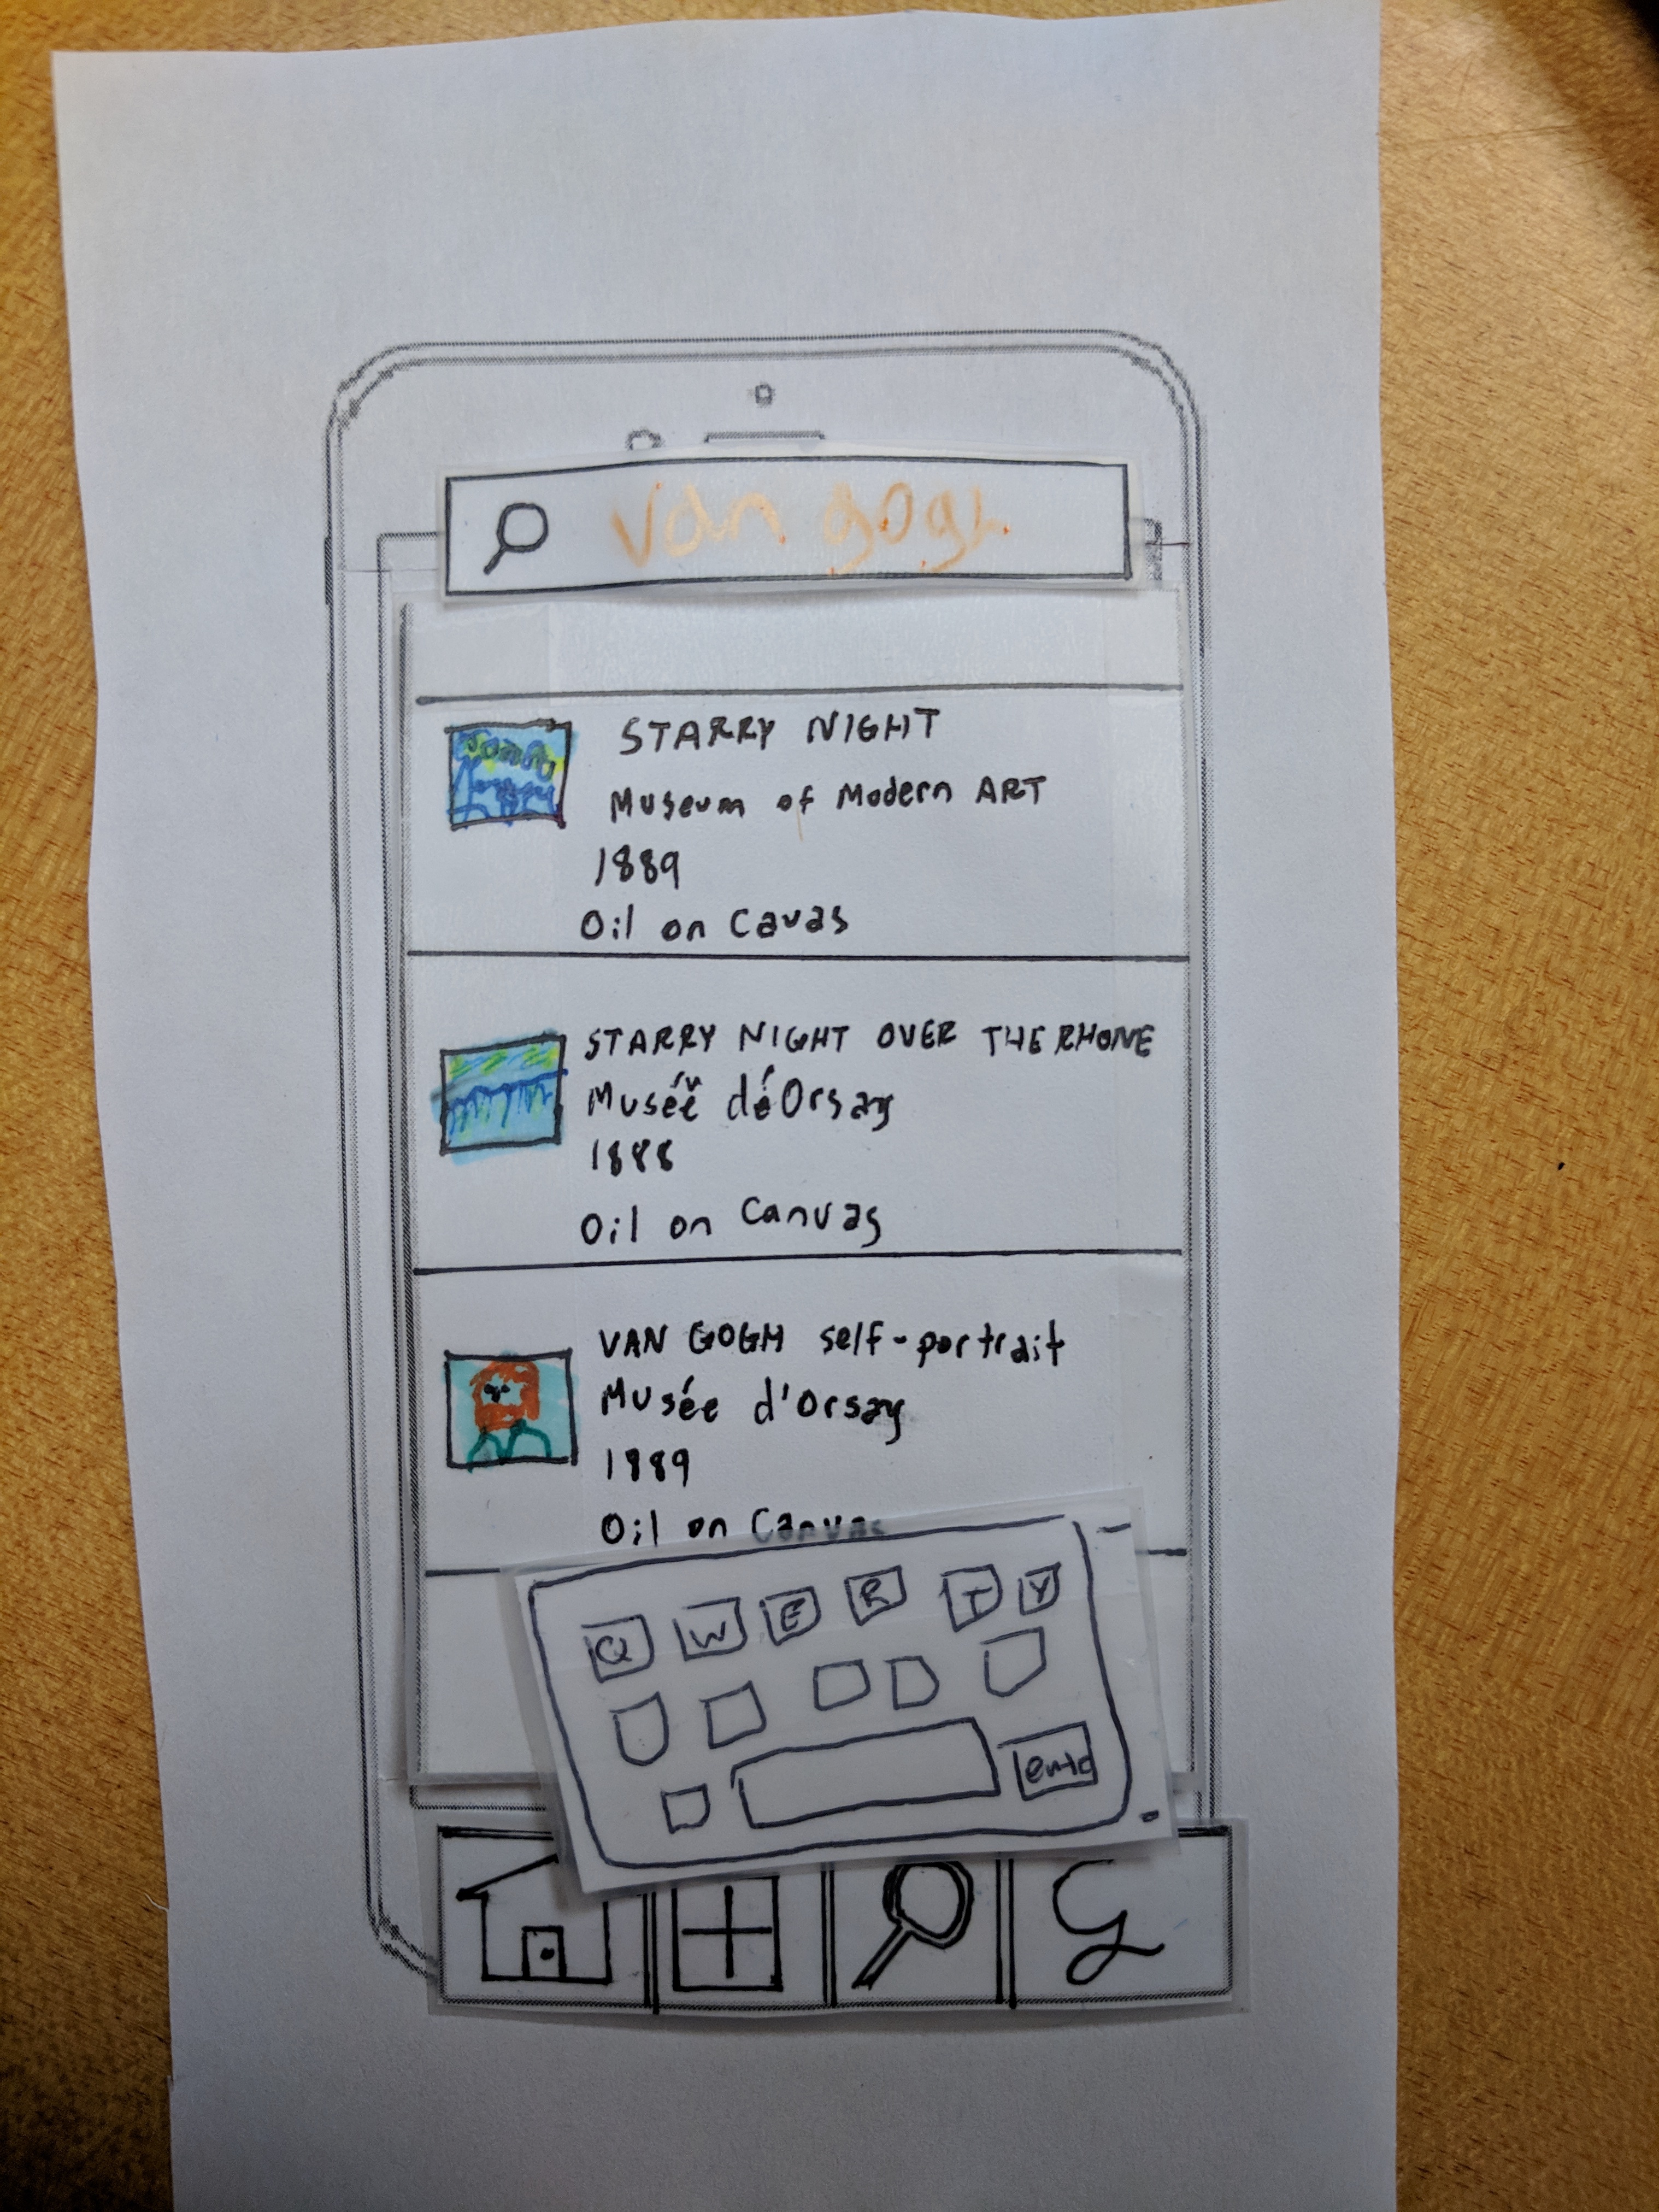 van gogh
STARRY NIGHT
Museum of Modern ART
1889
Oil on Cavas
STARRY NIGHT OVER THE RHONE
Musée dé Orsay
1888
Oil on Canvas
VAN GOGH self-portrait
Musée d'Orsay
1889
Oil on Canvas
Q W E R T Y